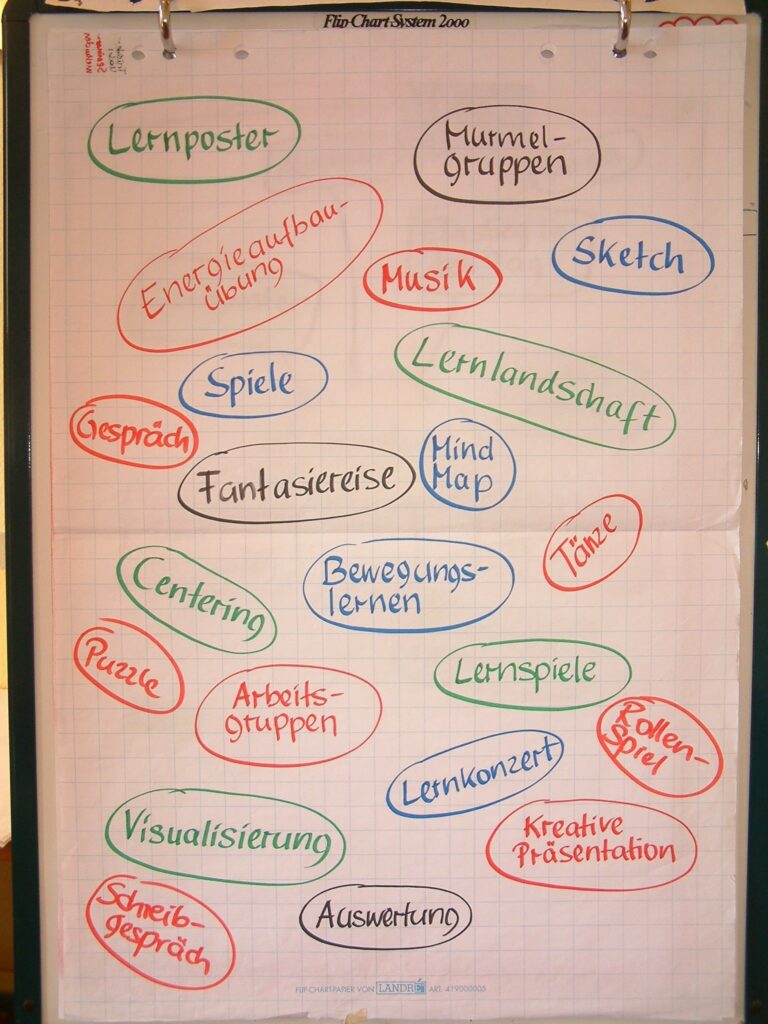 Flip Chart System 2000
Lernposter
Murmel-
gruppen
Energieaufbau-
übung
Musik
Sketch
Spiele
Lernlandschaft
Gespräch
Fantasiereise
Mind
Map
Tänze
Centering
Bewegungs-
lernen
Puzzle
Arbeits-
gruppen
Lernspiele
Rollen-
Spiel
Lernkonzert
Visualisierung
Kreative
Präsentation
Schreib-
gespräch
Auswertung
FLIP-CHART-PAPIER VON LANDRÉ ART. 419000005